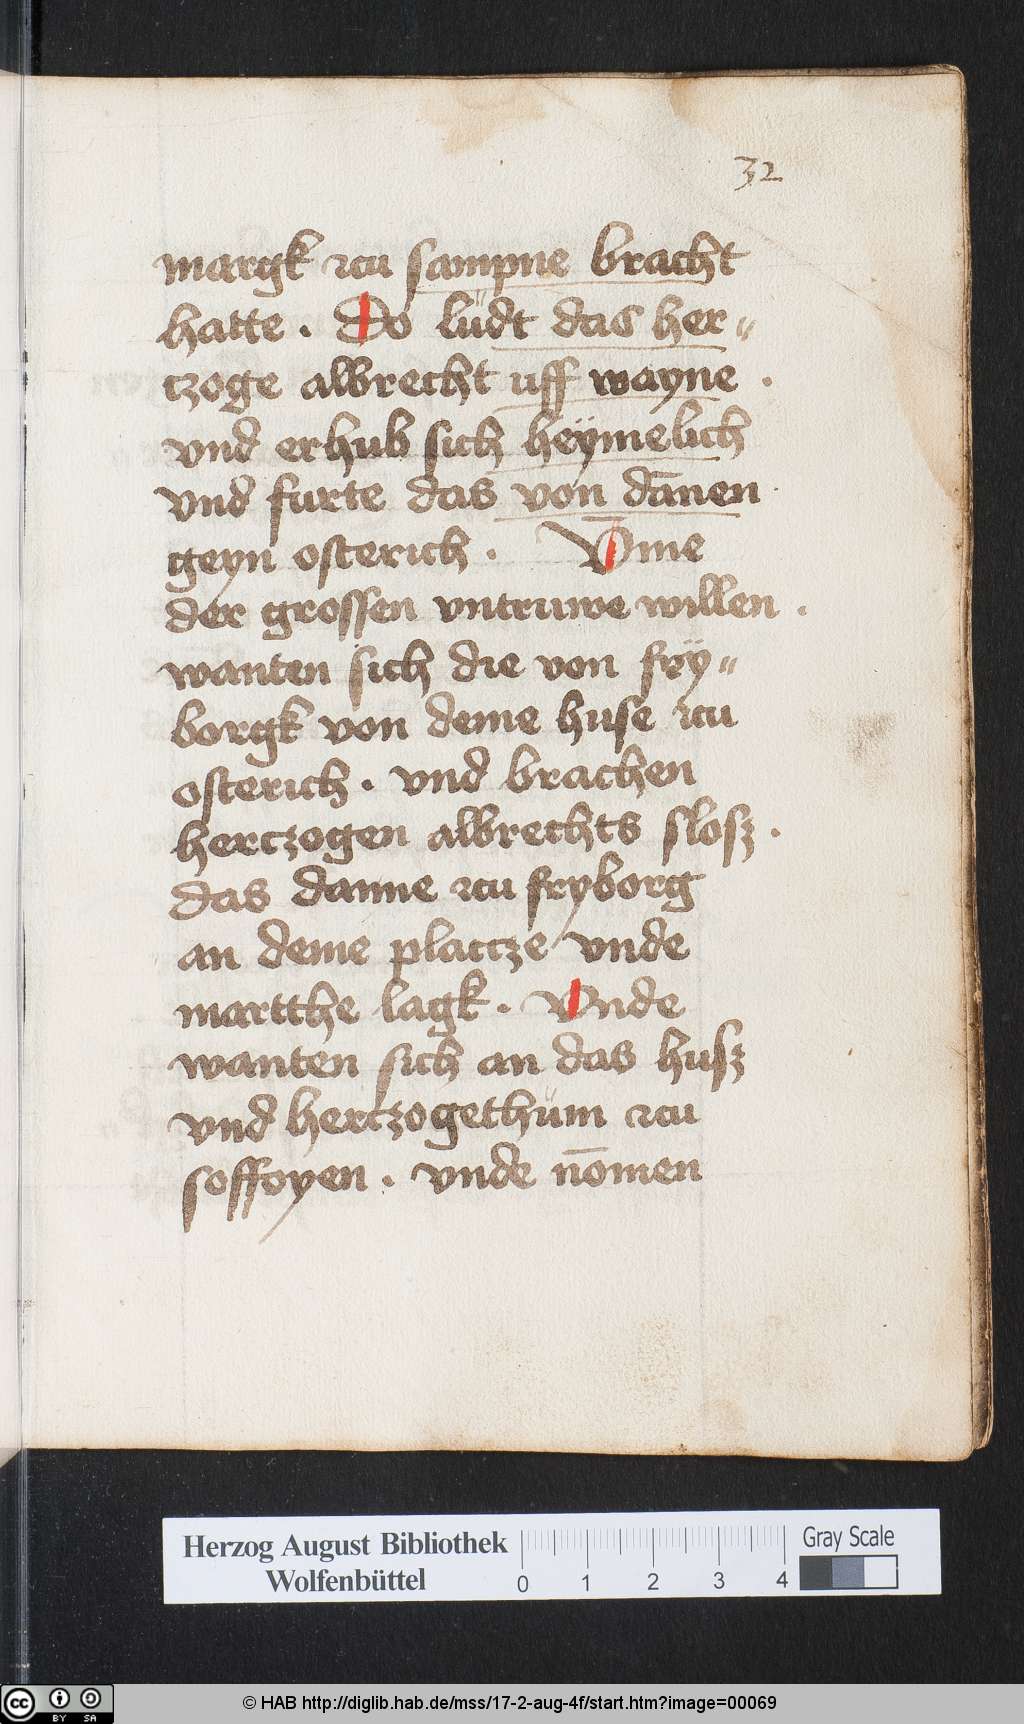 32
margk zcu sampne bracht
hatte . Do lüdt das her⸗
tzoge albrecht uff wayne .
vnd erhub sich heÿmelich
vnd furte das von dānen
geyn osterich . Vme
der grossen vntruwe willen .
wanten sich die von frÿ⸗
borgk von deme huse zcu
osterich . vnd brachen
hertzogen albrechts slosz .
das danne zcu fryborg
an deme platcze vnde
martthe lagk . Vnde
wanten sich an das husz
vnd hertzogethüm zcu
soffoyen . vnde nōmen
Herzog August Bibliothek
Wolfenbüttel
0 1 2 3 4
Gray Scale
cc BY SA
© HAB http://diglib.hab.de/mss/17-2-aug-4f/start.htm?image=00069